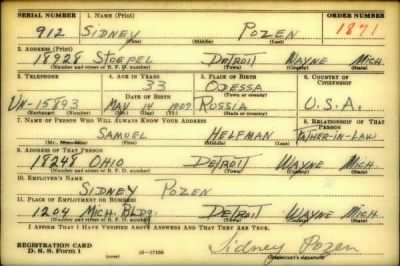 SERIAL NUMBER 1. NAME (Print) ORDER NUMBER
912 SIDNEY POZEN 1871
(First) (Middle) (Last)
2. ADDRESS (Print)
18928 STOEPEL DETROIT WAYNE MICH.
(Number and street or R. F. D. number) (Town) (County) (State)
3. TELEPHONE 4. AGE IN YEARS 5. PLACE OF BIRTH 6. COUNTRY OF CITIZENSHIP
33 ODESSA
DATE OF BIRTH (Town or county)
UN-15893 MAY 14 1907 RUSSIA U.S.A.
(Exchange) (Number) (Mo.) (Day) (Yr.) (State or country)
7. NAME OF PERSON WHO WILL ALWAYS KNOW YOUR ADDRESS 8. RELATIONSHIP OF THAT PERSON
SAMUEL HELFMAN FATHER-IN-LAW
(First) (Middle) (Last)
9. ADDRESS OF THAT PERSON
18248 OHIO DETROIT WAYNE MICH.
(Number and street or R. F. D. number) (Town) (County) (State)
10. EMPLOYER'S NAME
SIDNEY POZEN
11. PLACE OF EMPLOYMENT OR BUSINESS
1204 MICH. BLDG. DETROIT WAYNE MICH.
(Number and street or R. F. D. number) (Town) (County) (State)
I AFFIRM THAT I HAVE VERIFIED ABOVE ANSWERS AND THAT THEY ARE TRUE.
REGISTRATION CARD
D. S. S. Form 1 (over) 16—17106 Sidney Pozen
(Registrant's signature)